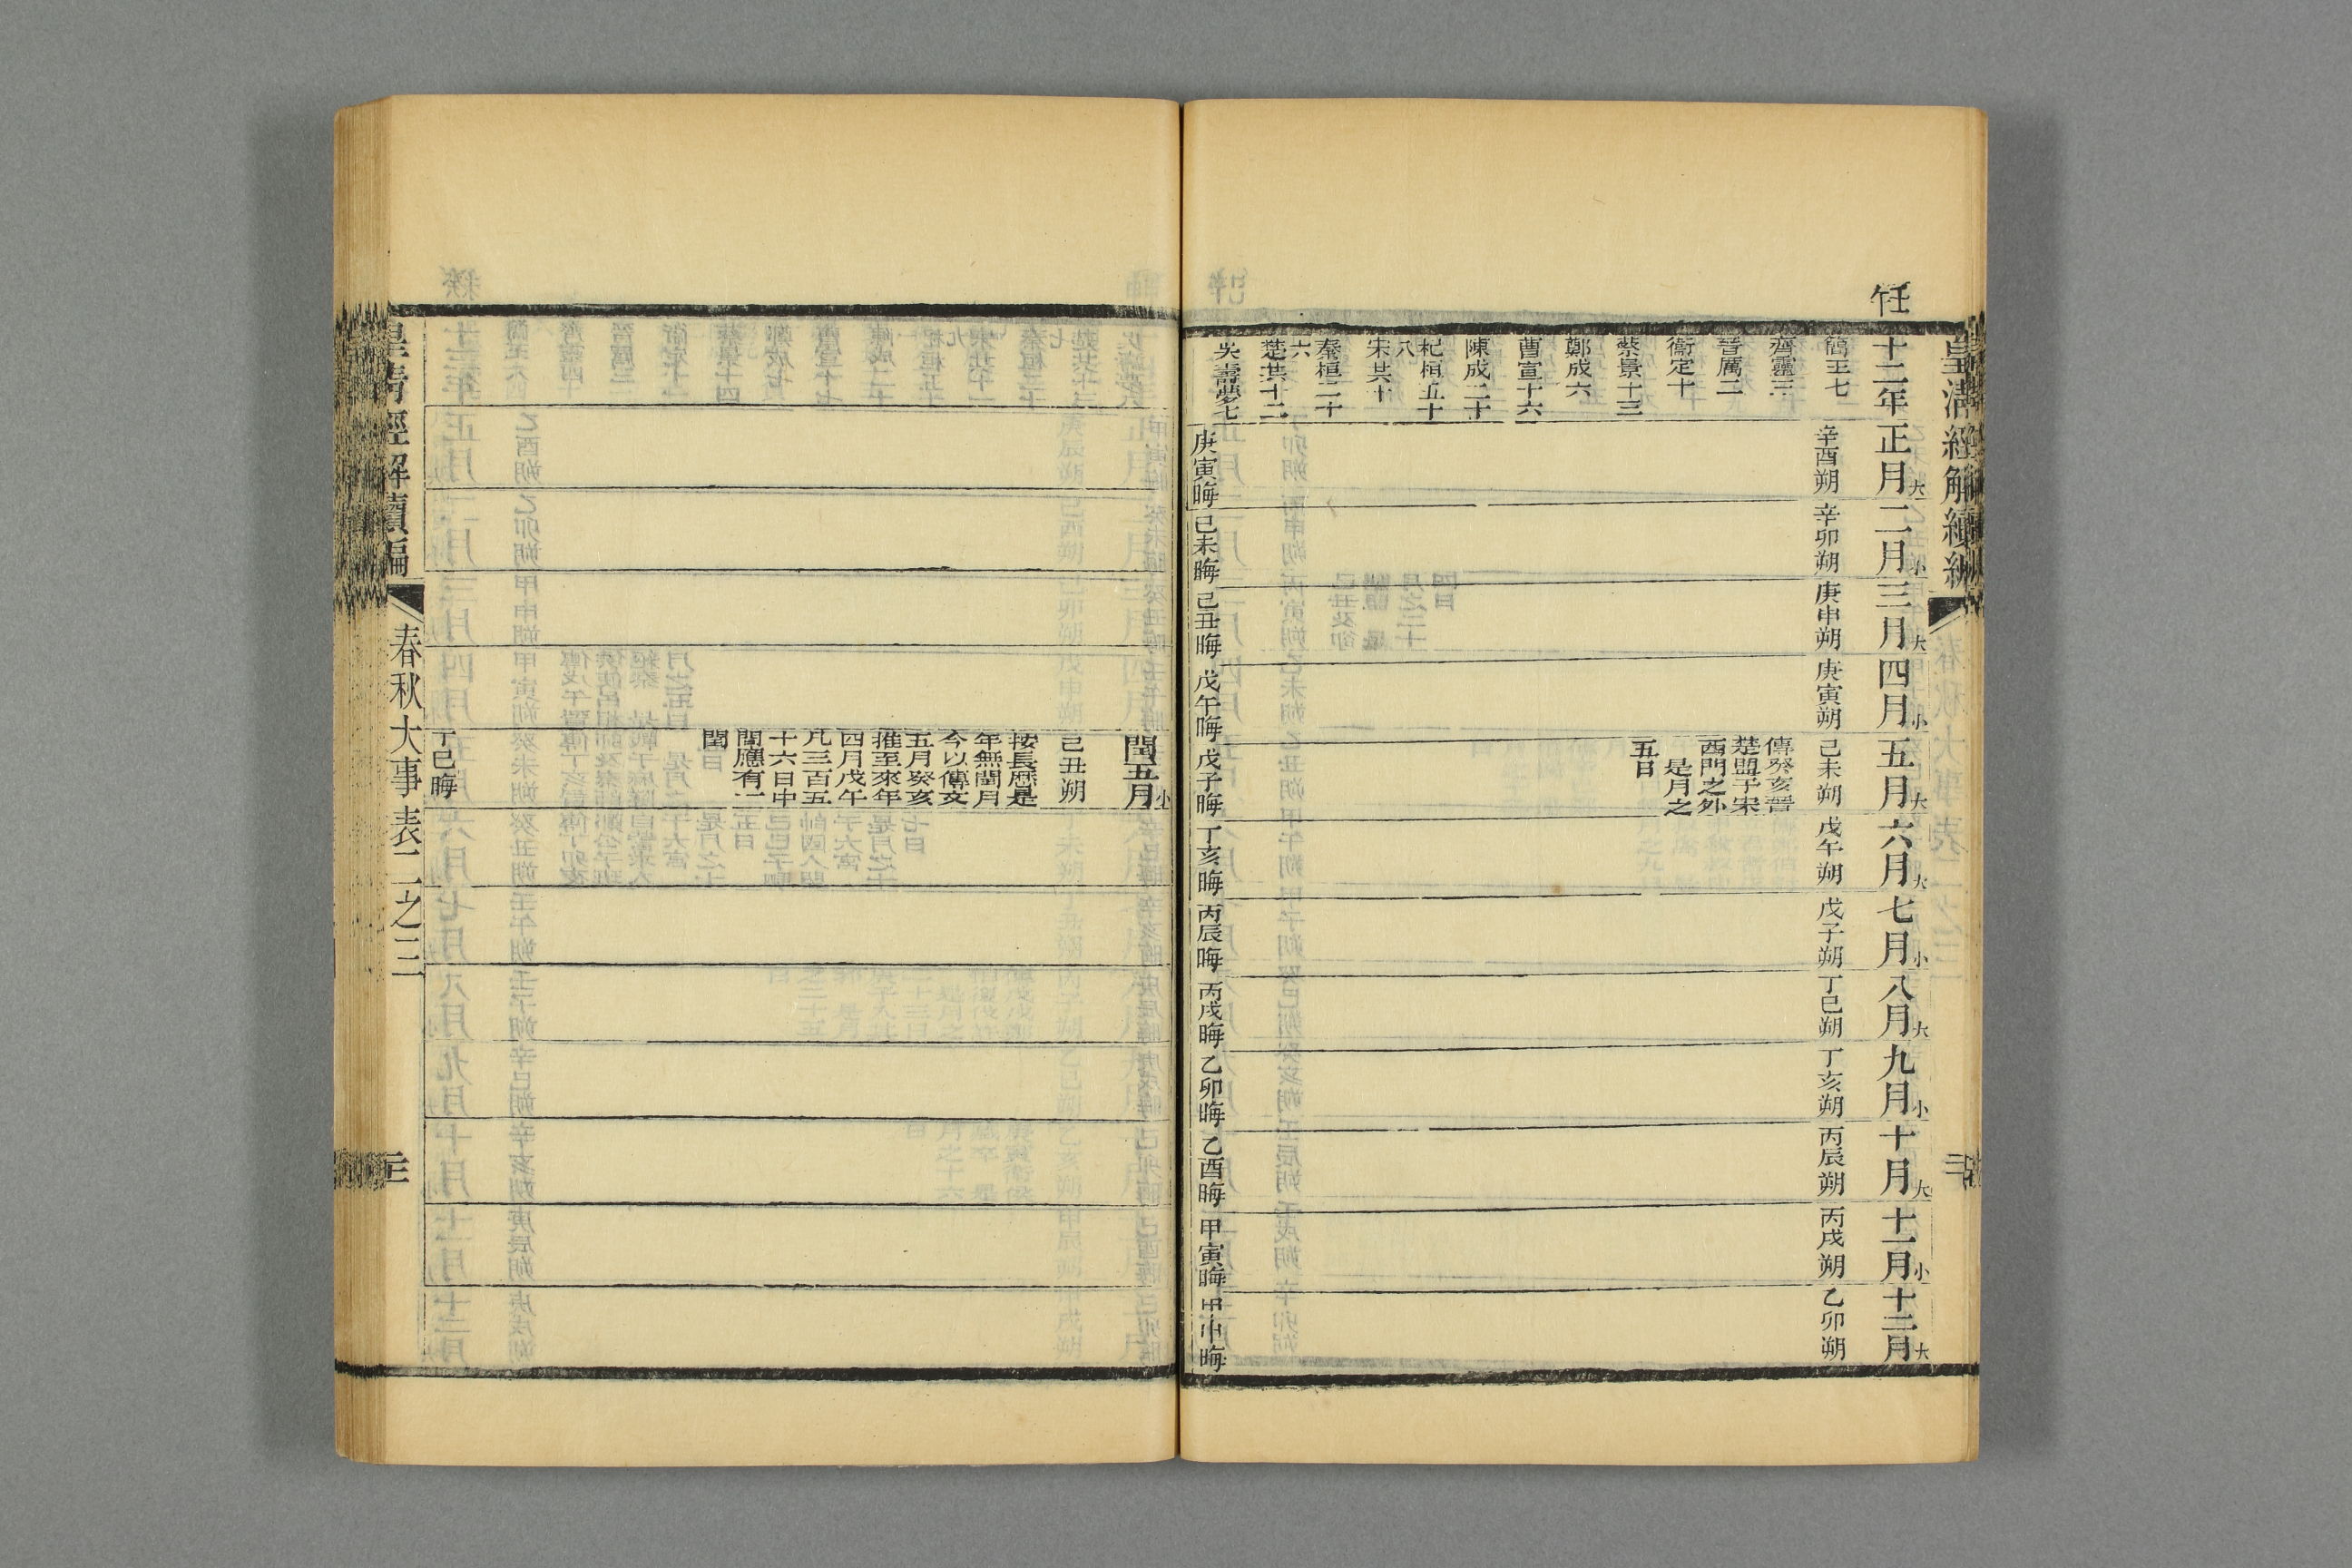 皇清經解續編
壬午
十二年
簡王七
齊靈三
晉厲二
衞定十
蔡景十三
鄭成六
曹宣十六
陳成二十
杞桓五十
八
宋共十
秦桓二十
六
楚共十二
吳壽夢七
正月大
辛酉朔
庚寅晦
二月小
辛卯朔
己未晦
三月大
庚申朔
己丑晦
四月小
庚寅朔
戊午晦
五月大
己未朔
傳癸亥晉
楚盟于宋
西門之外
是月之
五日
戊子晦
六月大
戊午朔
丁亥晦
七月小
戊子朔
丙辰晦
八月大
丁巳朔
丙戌晦
九月小
丁亥朔
乙卯晦
十月大
丙辰朔
乙酉晦
十一月小
丙戌朔
甲寅晦
十二月大
乙卯朔
甲申晦
閏五月小
己丑朔
按長厤是
年無閏月
今以傳文
五月癸亥
推至來年
四月戊午
凡三百五
十六日中
間應有一
閏
丁巳晦
皇清經解續編
春秋大事表二之三